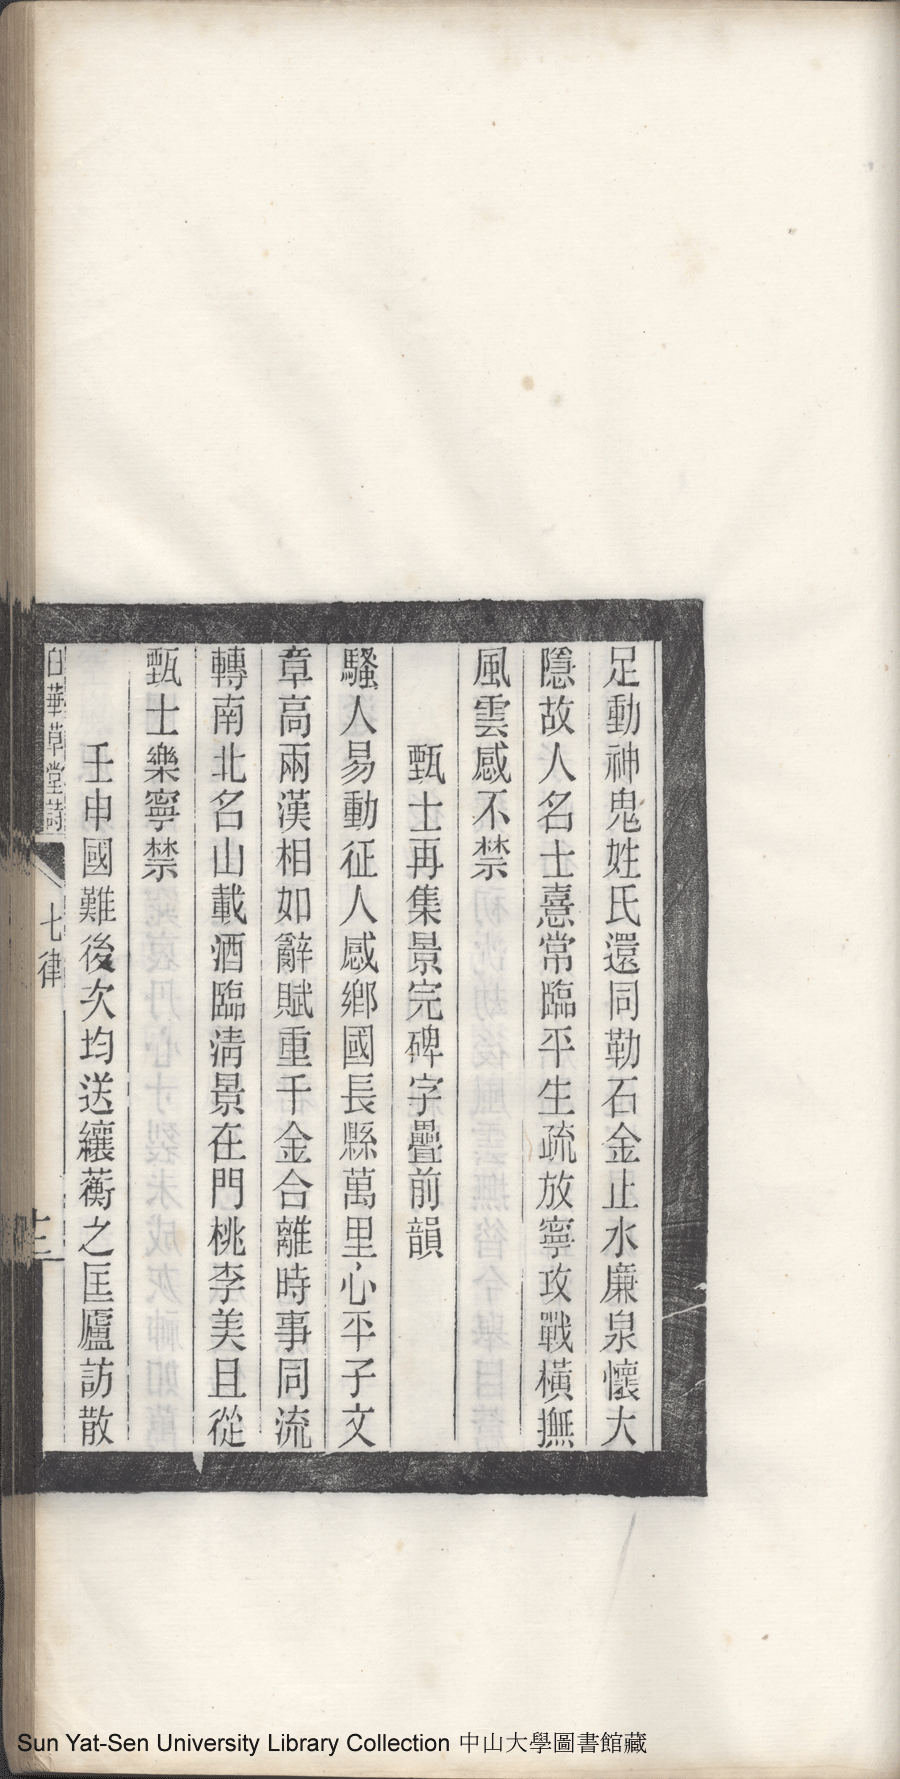 足動神鬼姓氏還同勒石金止水廉泉懷大
隱故人名士憙常臨平生疏放寧攻戰橫撫
風雲感不禁
甄士再集景完碑字疊前韻
騷人易動征人感鄉國長縣萬里心平子文
章高兩漢相如辭賦重千金合離時事同流
轉南北名山載酒臨淸景在門桃李美且從
甄士樂寧禁
壬申國難後次均送纕蘅之匡廬訪散
白華草堂詩
七律
Sun Yat-Sen University Library Collection 中山大學圖書館藏